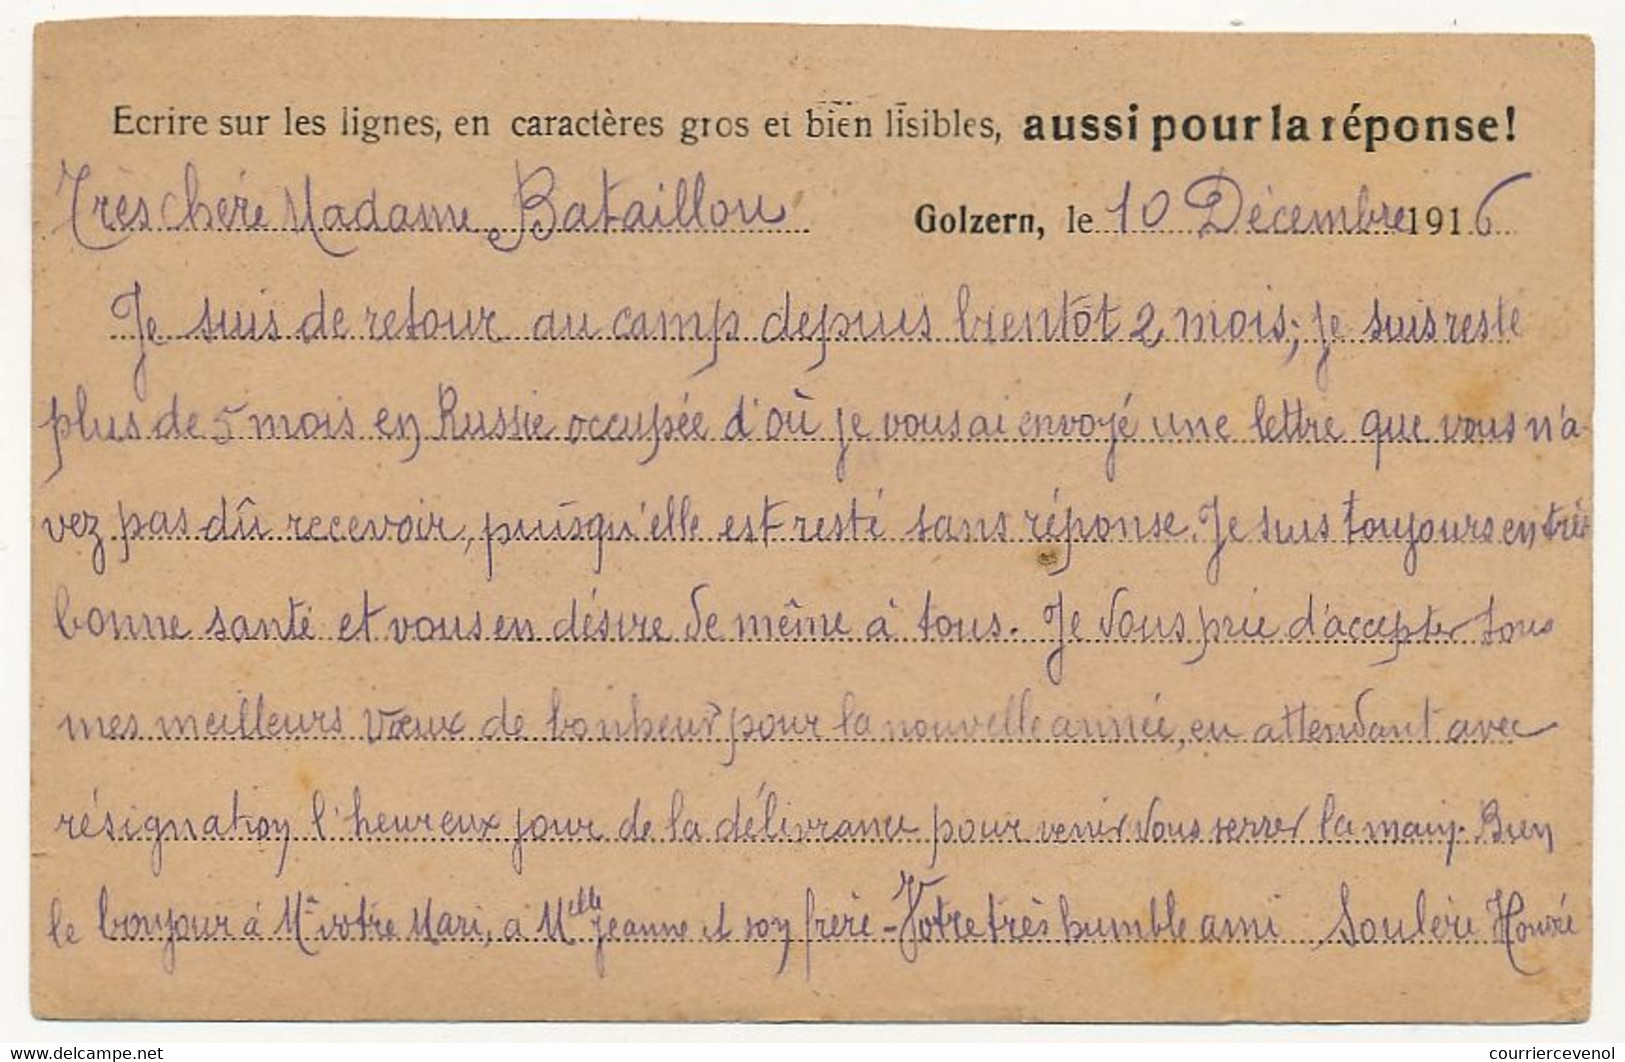 Ecrire sur les lignes, en caractères gros et bien lisibles, aussi pour la réponse!
Très chère Madame Bataillou Golzern, le 10 Décembre 1916
Je suis de retour au camp depuis bientôt 2 mois; je suis resté
plus de 5 mois en Russie occupée d'où je vous ai envoyé une lettre que vous n'a-
vez pas dû recevoir, puisqu'elle est resté sans réponse. Je suis toujours en très
bonne santé et vous en désire de même à tous. Je vous prie d'accepter tous
mes meilleurs vœux de bonheur pour la nouvelle année, en attendant avec
résignation l'heureux jour de la délivrance pour venir vous serrer la main. Bien
le bonjour à Mr votre Mari, à Melle Jeanne et son frère - Votre très humble ami Soulère Honoré
courriercevenol
www.delcampe.net